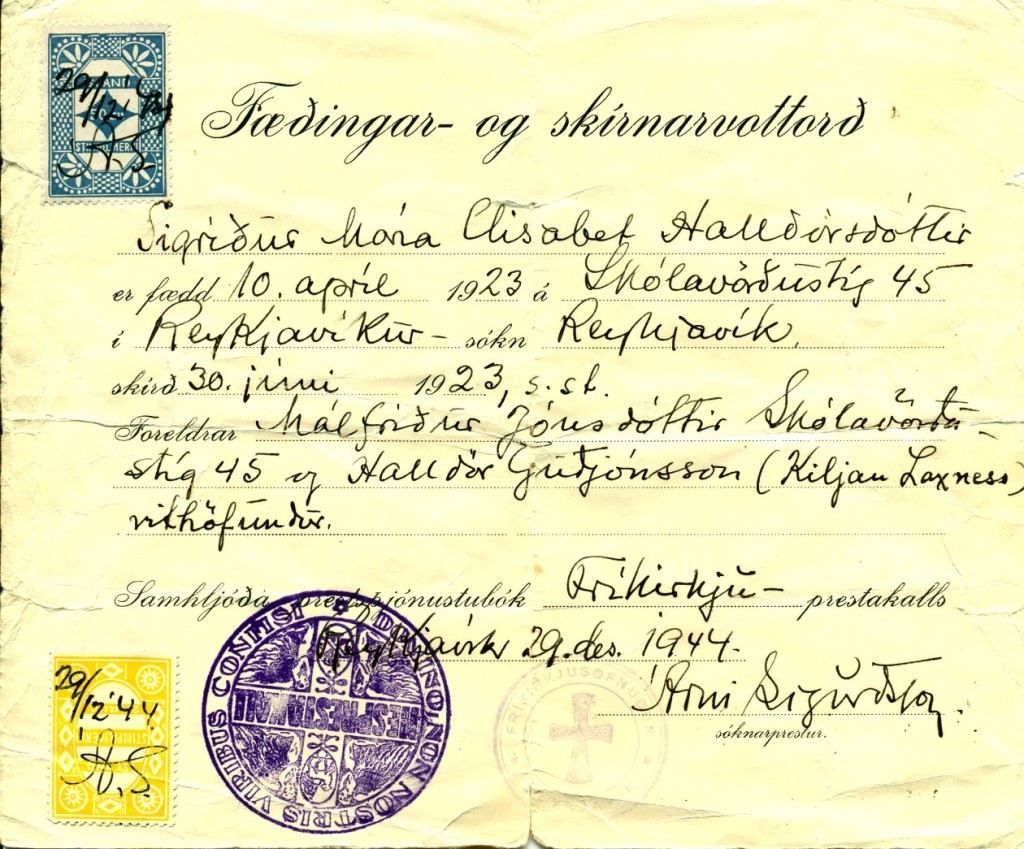 29/12 '44
Á.S.
Fæðingar- og skírnarvottorð
Sigríður María Elisabet Halldórsdóttir
er fædd 10. apríl 1923 á Skólavörðustíg 45
í Reykjavíkur- sókn Reykjavík.
skírð 30. júní 1923, s. st.
Foreldrar Málfríður Jónsdóttir Skólavörðu-
stíg 45 og Halldór Guðjónsson (Kiljan Laxness)
rithöfundur.
Samhljóða prestsþjónustubók Fríkirkju- prestakalls
Reykjavík 29. des. 1944.
Árni Sigurðsson.
sóknarprestur.
29/12 '44
Á.S.
DOMINO NON NOSTRIS VIRIBUS CONFISI
FRÍKIRKJUSÖFNUÐUR